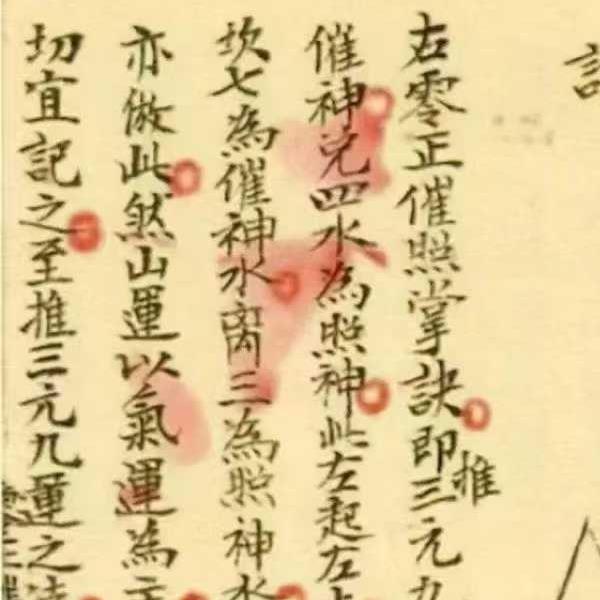 右零正催照掌訣即推三元九
催神兌四水為照神此左起左
坎七為催神水离三為照神水
亦倣此然山運以氣運為主
切宜記之至推三元九運之法